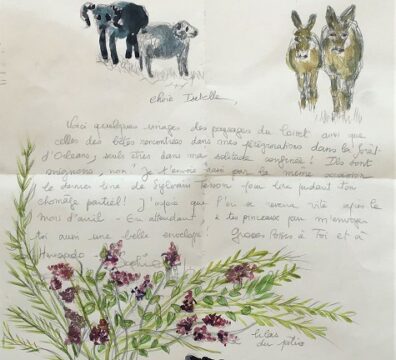 Chère Isabelle,
Voici quelques images des paysages du Loiret ainsi que
celles des bêtes rencontrées dans mes pérégrinations dans la forêt
d'Orléans, seuls êtres dans ma solitude confinée ! Ils sont
mignons, non ! Je t'envoie dans par la même occasion
le dernier livre de Sylvain Tesson pour lire pendant ton
chômage partiel ! J'espère que l'on se verra vite après le
mois d'avril - En attendant, à tes pinceaux pour m'envoyer
toi aussi une belle enveloppe ! Grosses Bises à Toi et à
lilas
du patio